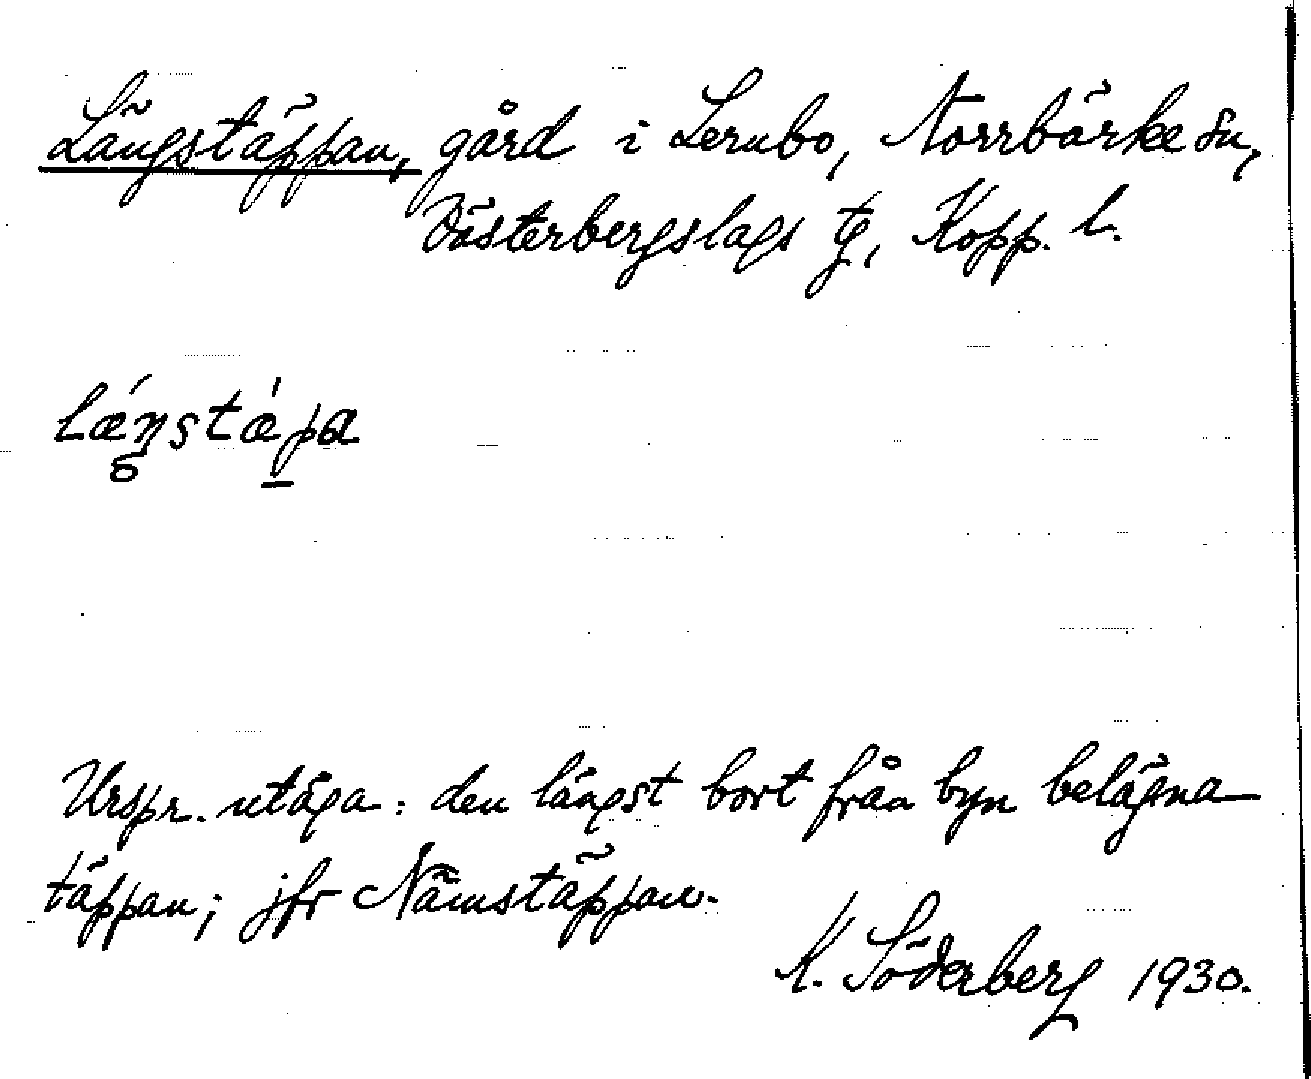 Längstäppan, gård i Lernbo, Norrbärke sn,
Västerbergslags tg, Kopp. l.
lǽŋstǽpa
Urspr. utäga: den längst bort från byn belägna
täppan; jfr Nämstäppan.
K. Söderberg 1930.